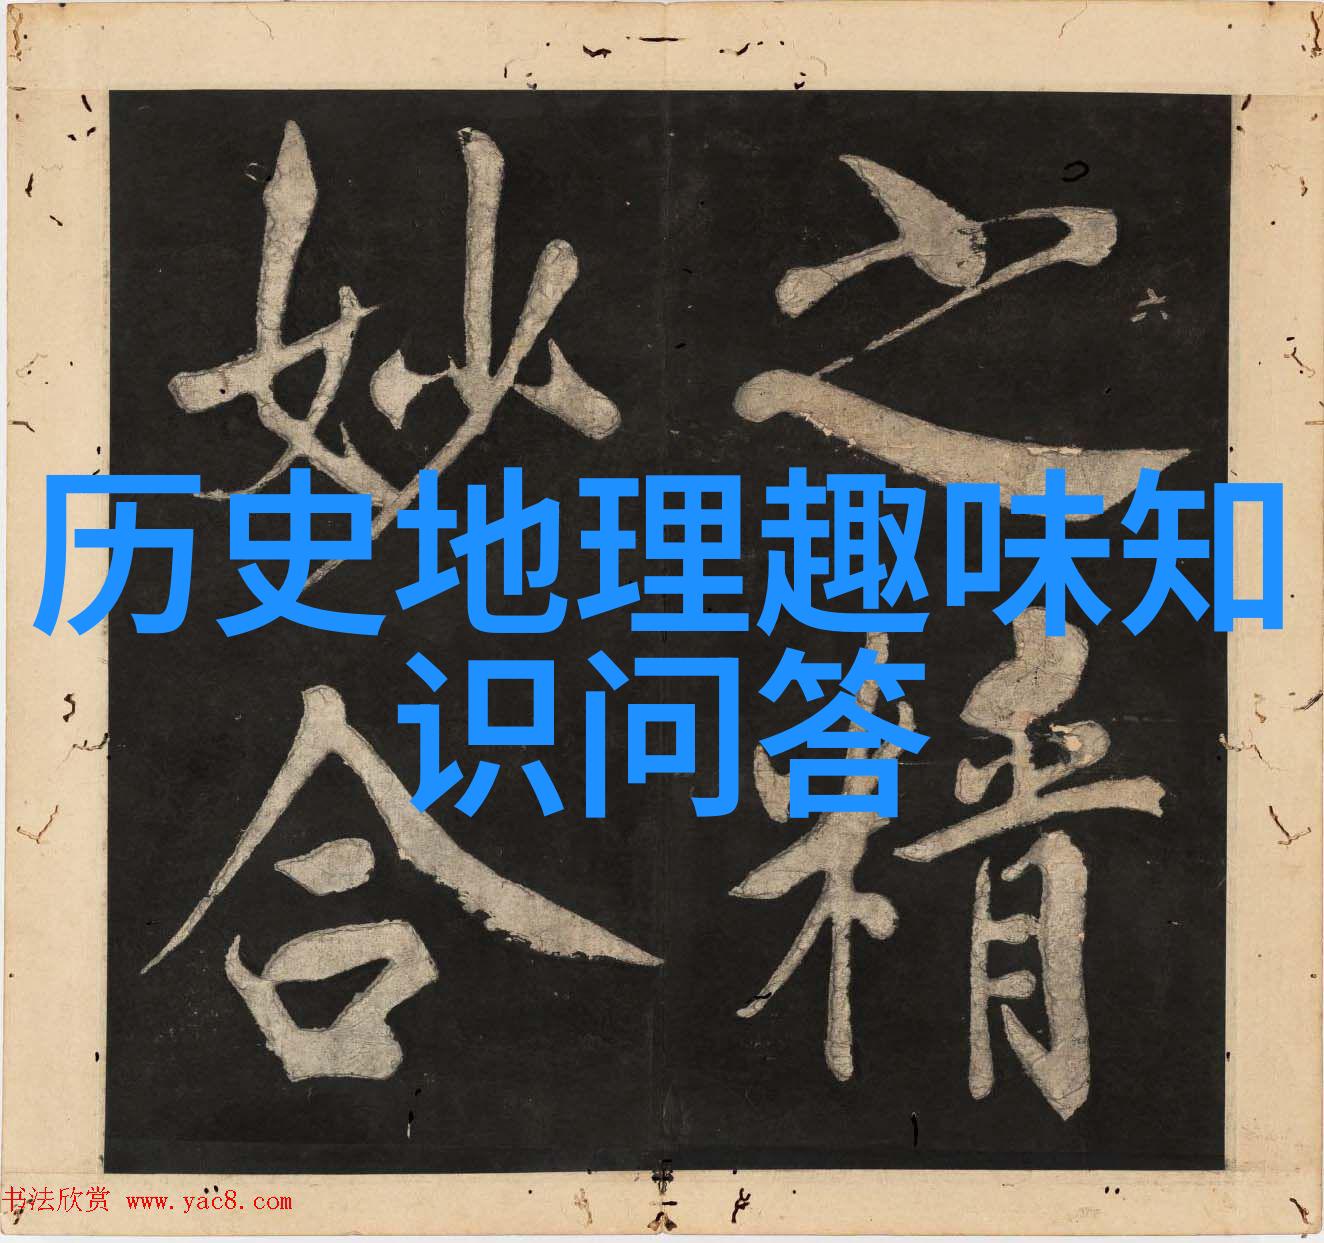 历史地理趣味知
识问答
之精
妙合
六
书法欣赏 www.yac8.com